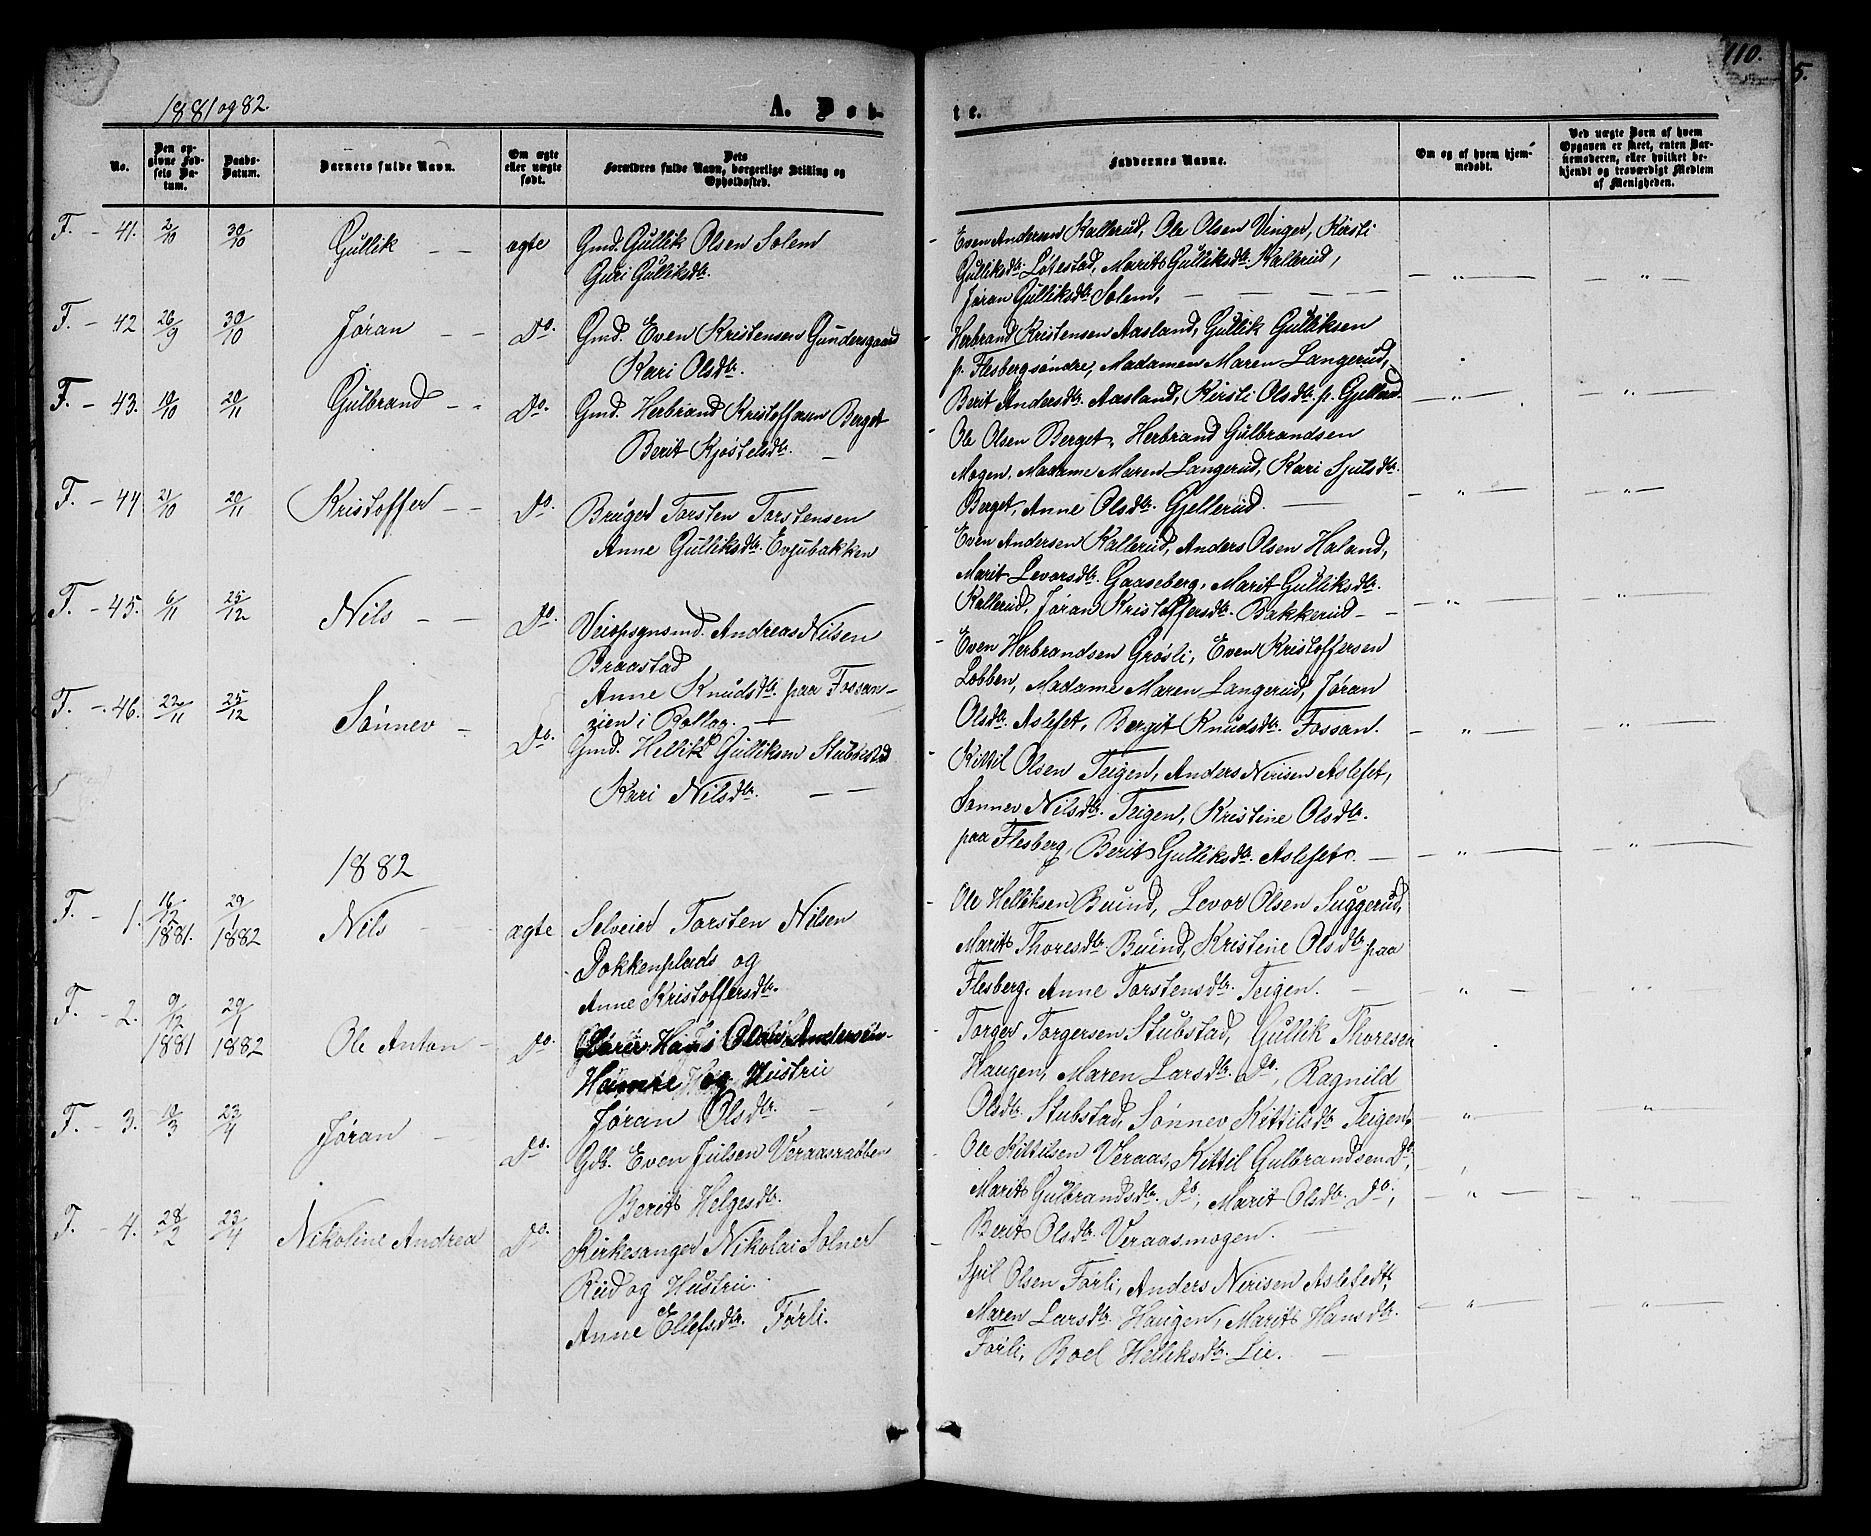 110.
5.
1881 og 82.
A. Døb-
te.
No.
Den opgivne Fødsels Datum.
Daabs-Datum.
Barnets fulde Navn.
Om ægte eller uægte født.
Dets Forældres fulde Navn, borgerlige Stilling og Opholdssted.
Faddernes Navne.
Om og af hvem hjemmedøbt.
Ved uægte Børn af hvem Opgaven er skeet, enten Barnemoderen, eller hvilket bekjendt og troværdigt Medlem af Menigheden.
F. - 41. 2/10 30/10 Gullik - - ægte Gmd. Gullik Olsen Solem
Guri Gulliksdtr.
Even Andersen Kallerud, Ole Olsen Vinger, Kirsti
Gulliksdtr. Løkestad, Marit Gulliksdtr. Kallerud,
Jøran Gulliksdtr. Solem,
F. - 42 26/9 30/10 Jøran - - Do. Gmd. Even Kristensen Gundersgaard
Kari Olsdtr.
Herbrand Kristensen Aasland, Gullik Gulliksen
p. Flesberg søndre, Madamen Maren Langerud,
Berit Andersdtr. Aasland, Kirsti Olsdtr. p. Gjellerud.
F. - 43. 19/10 20/11 Gulbrand - - Do. Gmd. Herbrand Kristoffersen Berget
Berit Kjøstelsdtr. -
Ole Olsen Berget, Herbrand Gulbrandsen
Mogen, Madame Maren Langerud, Kari Sjulsdtr.
Berget, Anne Olsdtr. Gjellerud.
F. - 44 21/10 20/11 Kristoffer - - Do. Bruger Torsten Torstensen
Anne Gulliksdtr. Evjubakken
Even Andersen Kallerud, Anders Olsen Haland,
Marit Levorsdtr. Gaaseberg, Marit Gulliksdtr.
Kallerud, Jøran Kristoffersdtr. Bakkerud -
F. - 45. 6/11 25/12 Nils - - Do. Veiopsynsmd. Andreas Nilsen
Braastad
Anne Knudsdtr. paa Fossan-
zien i Rollag. -
Even Herbrandsen Grøsli, Even Kristoffersen
Lobben, Madame Maren Langerud, Jøran
Olsdtr. Aslefet, Bergit Knudsdtr. Fossan.
F. - 46. 22/11 25/12 Sønnev - Do. Gmd. Hellik Gulliksen Stubstad
Kari Nilsdtr. - -
Kittil Olsen Teigen, Anders Nirisen Aslefet,
Sønnev Nilsdtr. Teigen, Kristine Olsdtr.
paa Flesberg, Berit Gulliksdtr. Aslefet. -
1882
F. - 1. 16/12 1881. 29/1 1882 Nils - - ægte Selveier Torsten Nilsen
Dokkenplads og
Anne Kristoffersdtr.
Ole Helliksen Buind, Levor Olsen Suggerud,
Marit Thoresdtr. Buind, Kristine Olsdtr. paa
Flesberg, Anne Torstensdtr. Teigen. -
F. - 2. 9/12 1881 29/1 1882 Ole Anton - Do. Hans Andersen
og Hustru
Jøran Olsdtr. -
Torger Torgersen Stubstad, Gullik Thoresen
Haugen, Maren Larsdtr. Do, Ragnild
Olsdtr. Stubstad, Sønnev Kittilsdtr. Teigen,
F. - 3. 19/3 23/4 Jøran - Do. Gdb. Even Juilsen Veraasrabben
Berit Helgesdtr.
Ole Kittilsen Veraas, Kittil Gulbrandsen Do,
Marit Gulbrandsdtr. Do, Marit Olsdtr. Do,
Berit Olsdtr. Veraasmogen. -
F. - 4. 28/2 23/4 Nikoline Andrea Do. Kirkesanger Nikolai Solner
Rud og Hustru
Anne Ellefsdtr. Førli.
Olsen Førli, Anders Nirisen Aslefedt,
Maren Larsdtr. Haugen, Marit Hansdtr.
Førli, Boel Helliksdtr. Lie. -